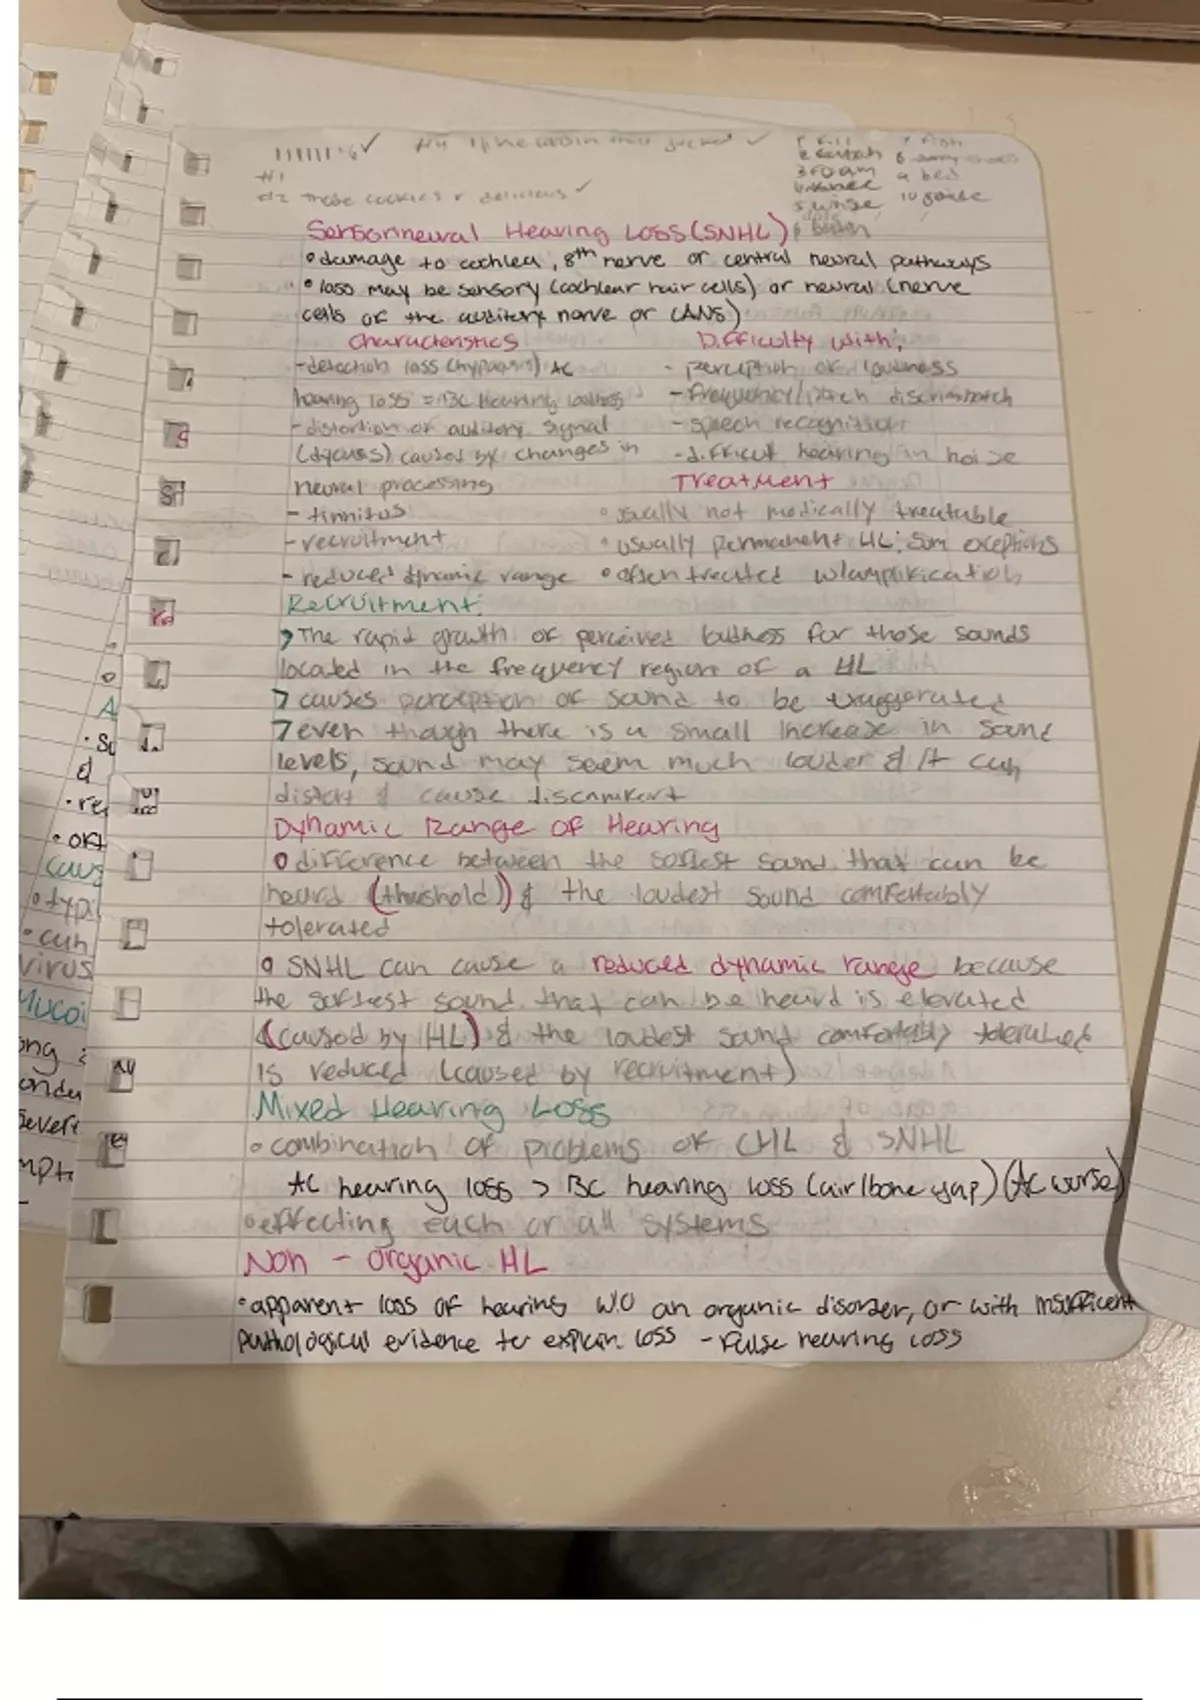 #2 These cookies r delicious ✓
Sensorineural Hearing Loss (SNHL)
• damage to cochlea, 8th nerve or central neural pathways
• loss may be sensory (cochlear hair cells) or neural (nerve
cells of the auditory nerve or CANS)
Characteristics
- detection loss (hypacusis) AC
hearing loss = BC Hearing
- distortion of auditory signal
(dycusis) caused by changes in
neural processing
- tinnitus
- recruitment
- reduced dynamic range
Difficulty with:
- perception of loudness
- frequency/pitch
- speech recognition
- difficult hearing in noise
Treatment
• usually not medically treatable
• usually permanent HL; sum exceptions
• often treated w/amplification
Recruitment:
> The rapid growth of perceived loudness for those sounds
located in the frequency region of a HL
> causes perception of sound to be exaggerated
> even though there is a small increase in sound
levels, sound may seem much louder & it can
distort & cause discomfort
Dynamic Range of Hearing
• difference between the softest sound that can be
heard (threshold) & the loudest sound comfortably
tolerated
• SNHL can cause a reduced dynamic range because
the softest sound that can be heard is elevated
(caused by HL) & the loudest sound comfortably tolerated
is reduced (caused by recruitment)
Mixed Hearing Loss
• combination of problems of CHL & SNHL
AC hearing loss > BC hearing loss (air/bone gap) (AC worse)
• effecting each or all systems
Non - organic HL
• apparent loss of hearing w.o an organic disorder, or with insufficent
pathological evidence to explain loss - False hearing loss